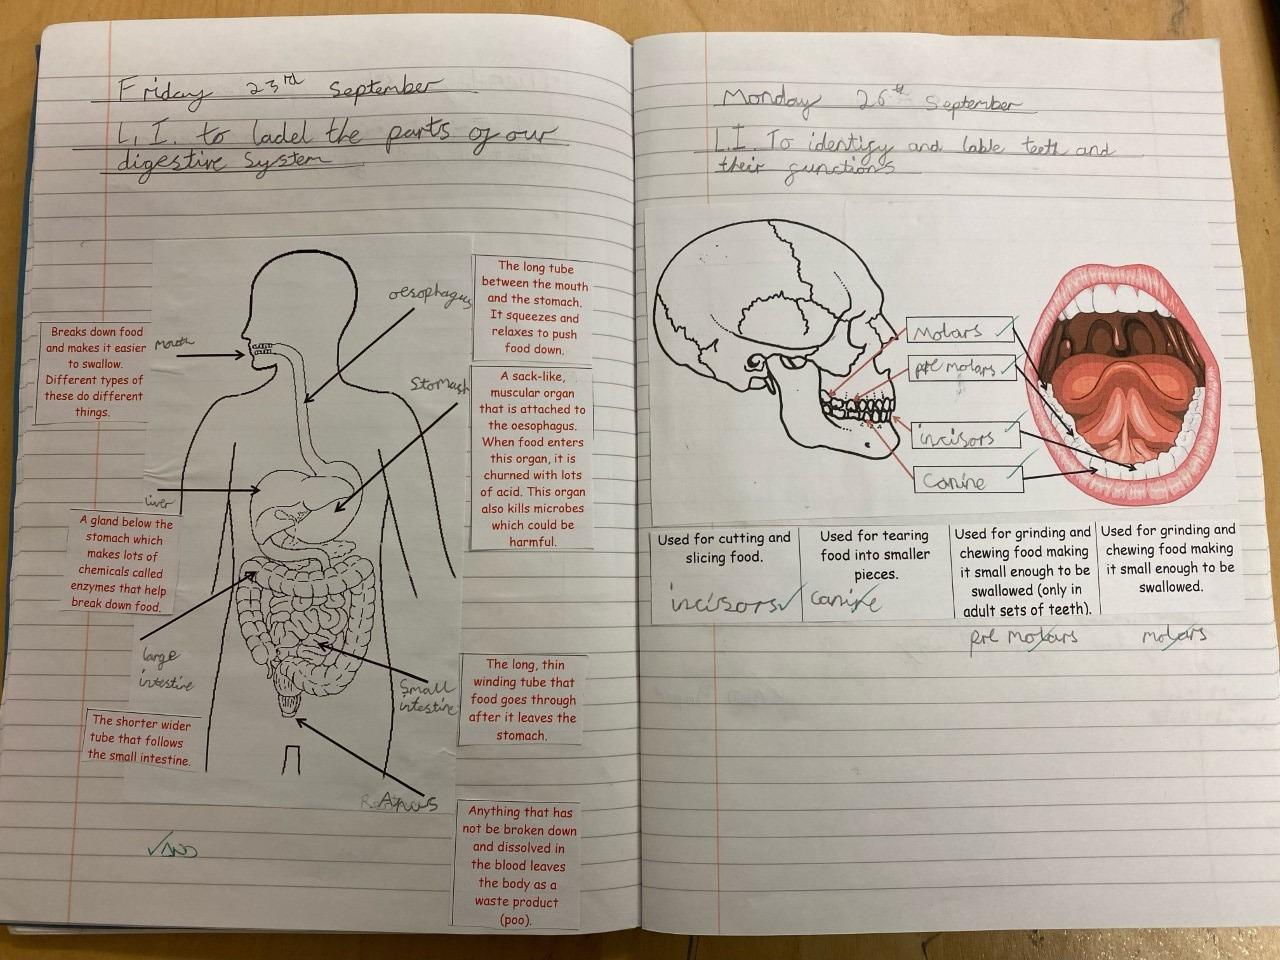 Friday 23rd September
L.I. to ladel the parts of our
digestive System
oesophagus
The long tube
between the mouth
and the stomach.
It squeezes and
relaxes to push
food down.
Breaks down food
and makes it easier
to swallow.
Different types of
these do different
things.
Mouth
Stomach
A sack-like,
muscular organ
that is attached to
the oesophagus.
When food enters
this organ, it is
churned with lots
of acid. This organ
also kills microbes
which could be
harmful.
liver
A gland below the
stomach which
makes lots of
chemicals called
enzymes that help
break down food.
large
intestine
Small
intestine
The long, thin
winding tube that
food goes through
after it leaves the
stomach.
The shorter wider
tube that follows
the small intestine.
Anus
Anything that has
not be broken down
and dissolved in
the blood leaves
the body as a
waste product
(poo).
Monday 26th September
L.I. To identify and lable teeth and
their functions
Molars
pre molars
incisors
Canine
Used for cutting and
slicing food.
incisors
Used for tearing
food into smaller
pieces.
Canine
Used for grinding and
chewing food making
it small enough to be
swallowed (only in
adult sets of teeth).
pre molars
Used for grinding and
chewing food making
it small enough to be
swallowed.
molars